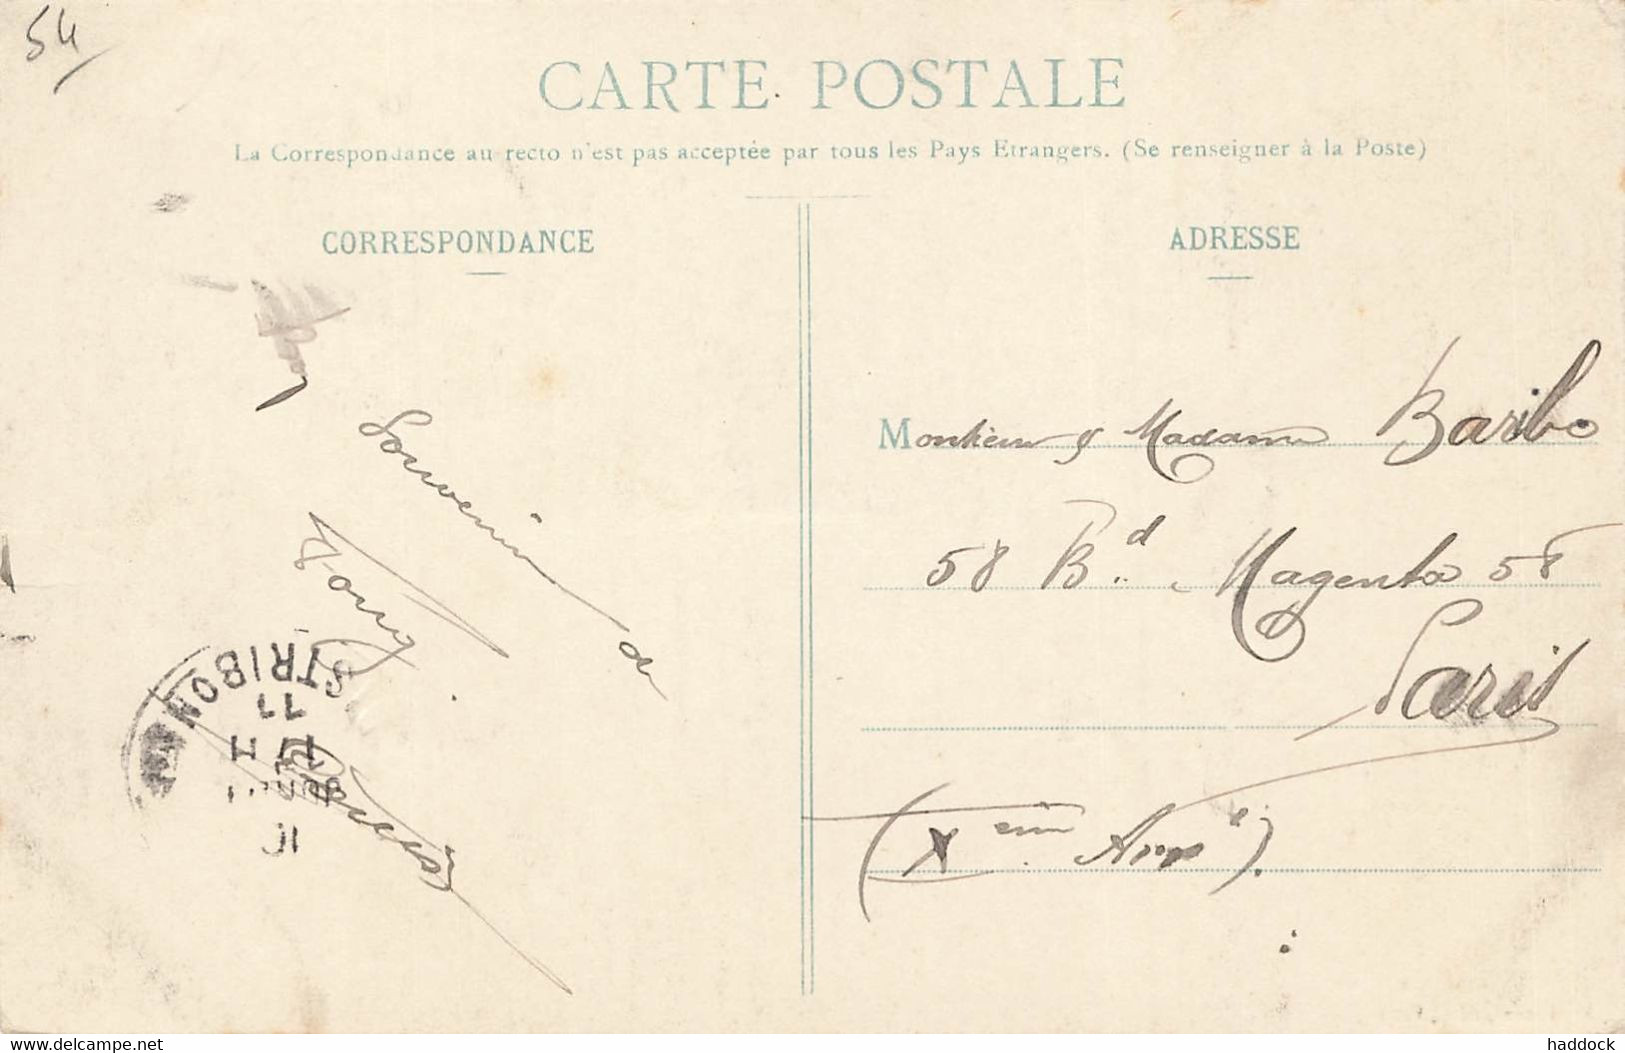 54
CARTE POSTALE
La Correspondance au recto n'est pas acceptée par tous les Pays Etrangers. (Se renseigner à la Poste)
CORRESPONDANCE
ADRESSE
Souvenir de
Monsieur & Madame Baribo
58 Bd. Magenta 58
Paris
(Xeme Arrt).
DISTRIBON
11
delcampe.net
haddock